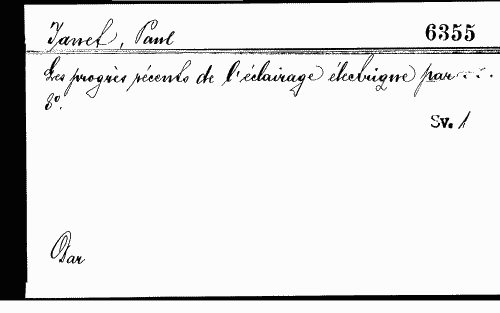 Janet, Paul 6355
Les progrès récents de l'éclairage électrique par ....
8°.
Sv. 1
Dar